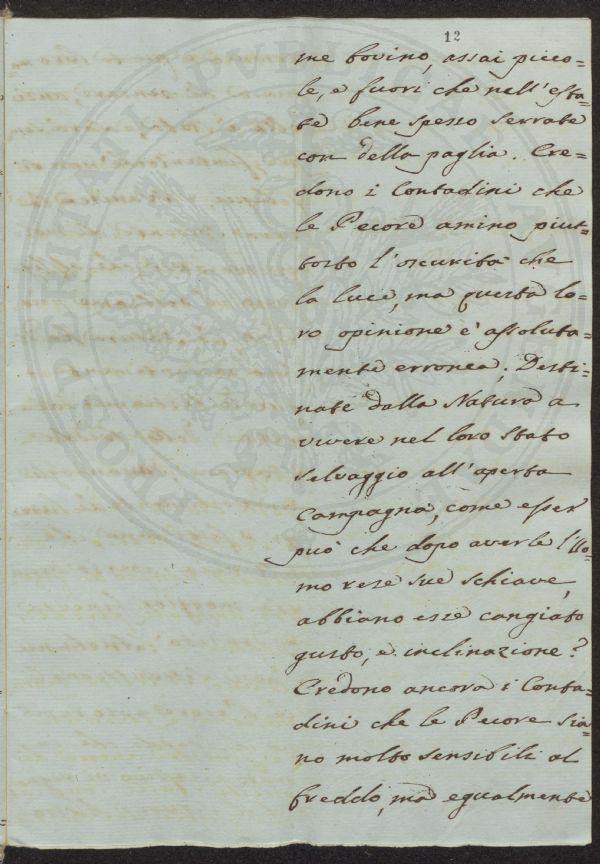 12
me bovino, assai picco=
le, e fuori che nell'esta=
te bene spesso serrate
con della paglia. Cre=
dono i Contadini che
le Pecore amino piut=
tosto l'oscurità che
la luce, ma questa lo=
ro opinione è assoluta=
mente erronea; Desti=
nate dalla Natura a
vivere nel loro stato
selvaggio all'aperta
Campagna, come esser
può che dopo averle l'Uo=
mo rese sue schiave,
abbiano esse cangiato
gusto, e inclinazione?
Credono ancora i Conta=
dini che le Pecore sia=
no molto sensibili al
freddo, ma egualmente
PROSPERITATI PUBLICAE AUGENDAE